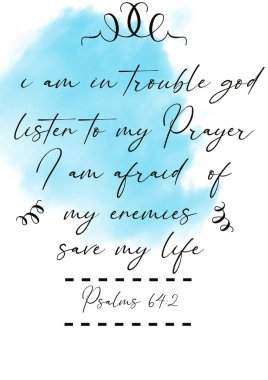 i am in trouble god
listen to my Prayer
I am afraid of
my enemies
save my life
Psalms 64:2